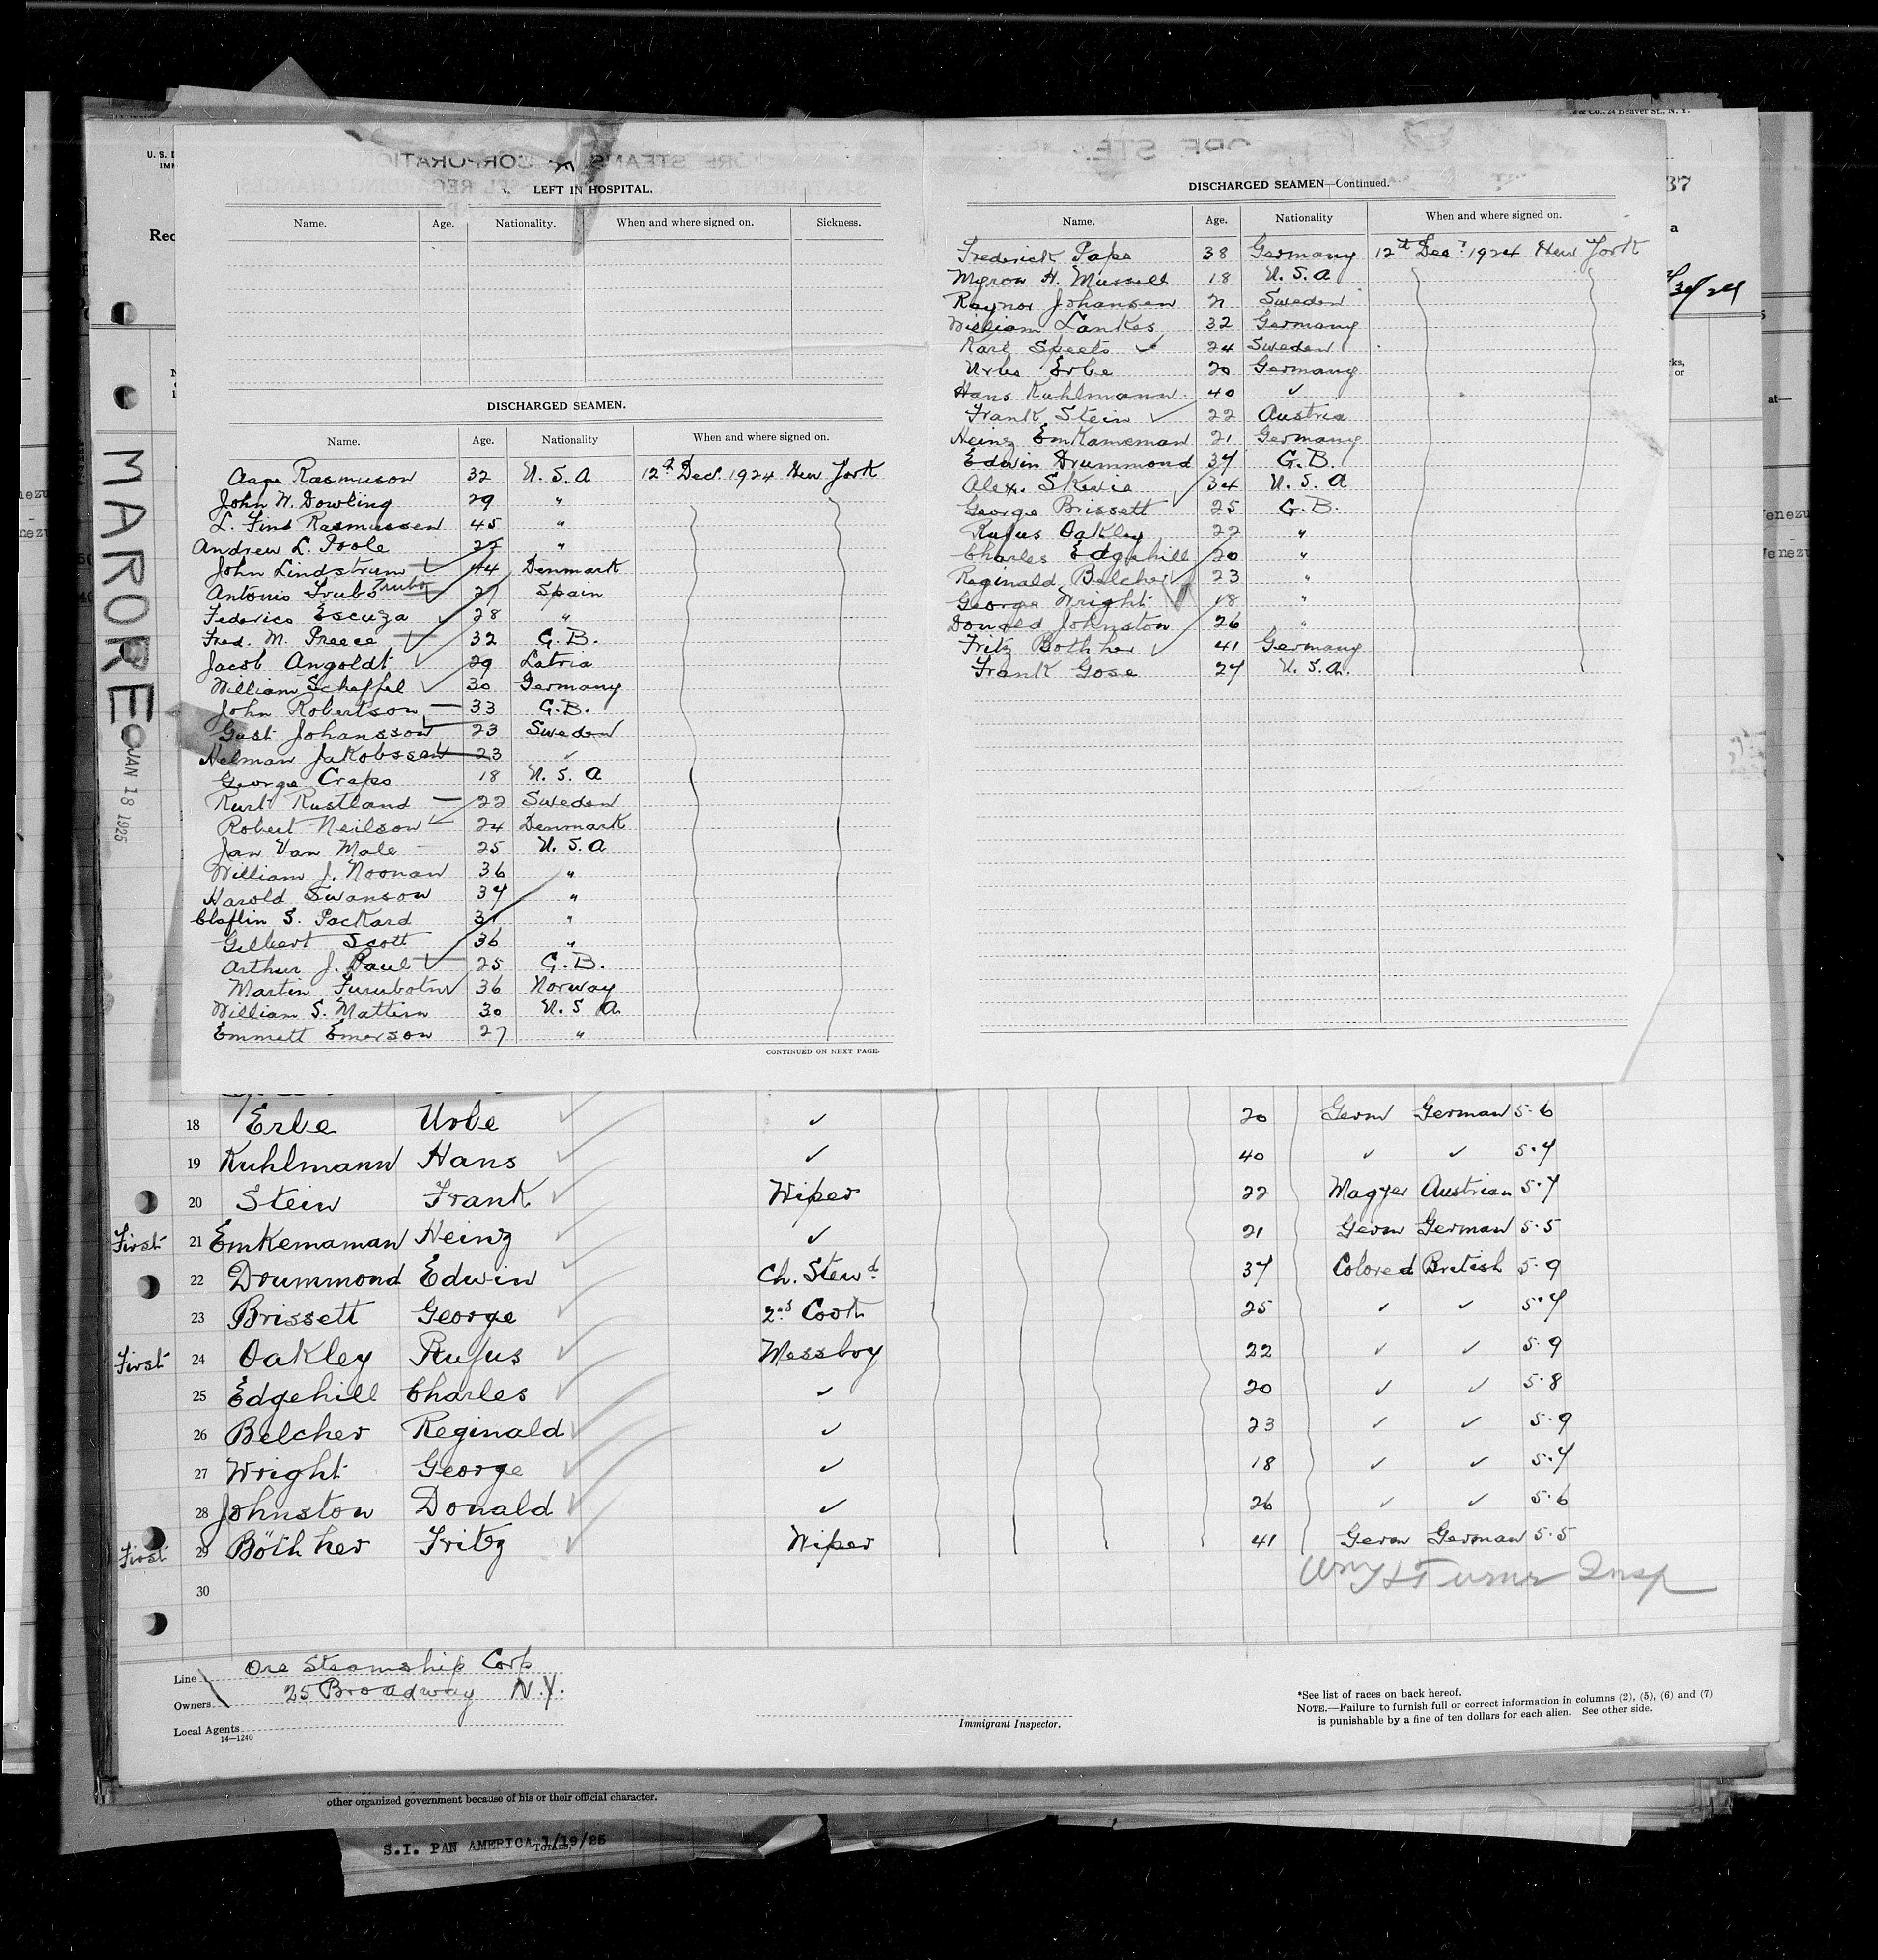 LEFT IN HOSPITAL.
Name. Age. Nationality. When and where signed on. Sickness.
DISCHARGED SEAMEN.
Name. Age. Nationality When and where signed on.
Aage Rasmuson 32 U. S. A 12th Dec. 1924 New York
John W. Dowling 29 "
L. Find Rasmussen 45 "
Andrew L. Poole 22 "
John Lindstrum 44 Denmark
Antonio Trubo Trubo 21 Spain
Federico Escuza 28 "
Fred. M. Preece 32 G. B.
Jacob Angoldt 29 Latria
William Scheffel 30 Germany
John Robertson 33 G. B.
Gust Johansson 23 Sweden
Helman Jakobssen 23 ✓
George Crapo 18 U. S. A
Kurt Rustland 22 Sweden
Robert Neilson 24 Denmark
Jan Van Male 25 U. S. A
William J. Noonan 36 "
Harold Swanson 37 "
Claflin S. Packard 31 "
Gilbert Scott 36 "
Arthur J. Paul 25 G. B.
Martin Furubotn 36 Norway
William S. Mattern 30 U. S A
Emmett Emerson 27 "
CONTINUED ON NEXT PAGE.
DISCHARGED SEAMEN—Continued.
Name. Age. Nationality When and where signed on.
Frederick Pape 38 Germany 12th Dec. 1924 New York
Myron H. Mussell 18 U. S. A
Raynor Johansen 21 Sweden
William Lankes 32 Germany
Karl Speets ✓ 24 Sweden
Urbe Erbe 20 Germany
Hans Kuhlmann 40 ✓
Frank Stein ✓ 22 Austria
Heinz Emkameman 21 Germany
Edwin Drummond 37 G. B.
Alex. Skevie 34 U. S. A
George Brissett 25 G. B.
Rufus Oakley 22 "
Charles Edgehill 20 "
Reginald Belcher 23 "
George Wright 18 "
Donald Johnston 26 "
Fritz Bothher 41 Germany
Frank Gose 27 U. S. A.
MARORE
JAN 18 1925
18 Erbe Urbe ✓ 20 Germ German 5·6
19 Kuhlmann Hans ✓ 40 ✓ ✓ 5·7
20 Stein Frank Wiper 22 Magyer Austrian 5·7
First 21 Emkemaman Heinz ✓ 21 Germ German 5·5
22 Drummond Edwin Ch. Stewd. 37 Colored British 5·9
23 Brissett George 2nd Cook 25 ✓ ✓ 5·7
First 24 Oakley Rufus Messboy 22 ✓ ✓ 5·9
25 Edgehill Charles ✓ 20 ✓ ✓ 5·8
26 Belcher Reginald ✓ 23 ✓ ✓ 5·9
27 Wright George ✓ 18 ✓ ✓ 5·7
28 Johnston Donald ✓ 26 ✓ ✓ 5·6
First 29 Böthher Fritz Wiper 41 Germ German 5·5
Turner Insp
30
Line Ore Steamship Corp
Owners 25 Broadway N.Y.
Local Agents
14—1240
Immigrant Inspector.
*See list of races on back hereof.
NOTE.—Failure to furnish full or correct information in columns (2), (5), (6) and (7)
is punishable by a fine of ten dollars for each alien. See other side.
other organized government because of his or their official character.
S.I. PAN AMERICA 1/19/25